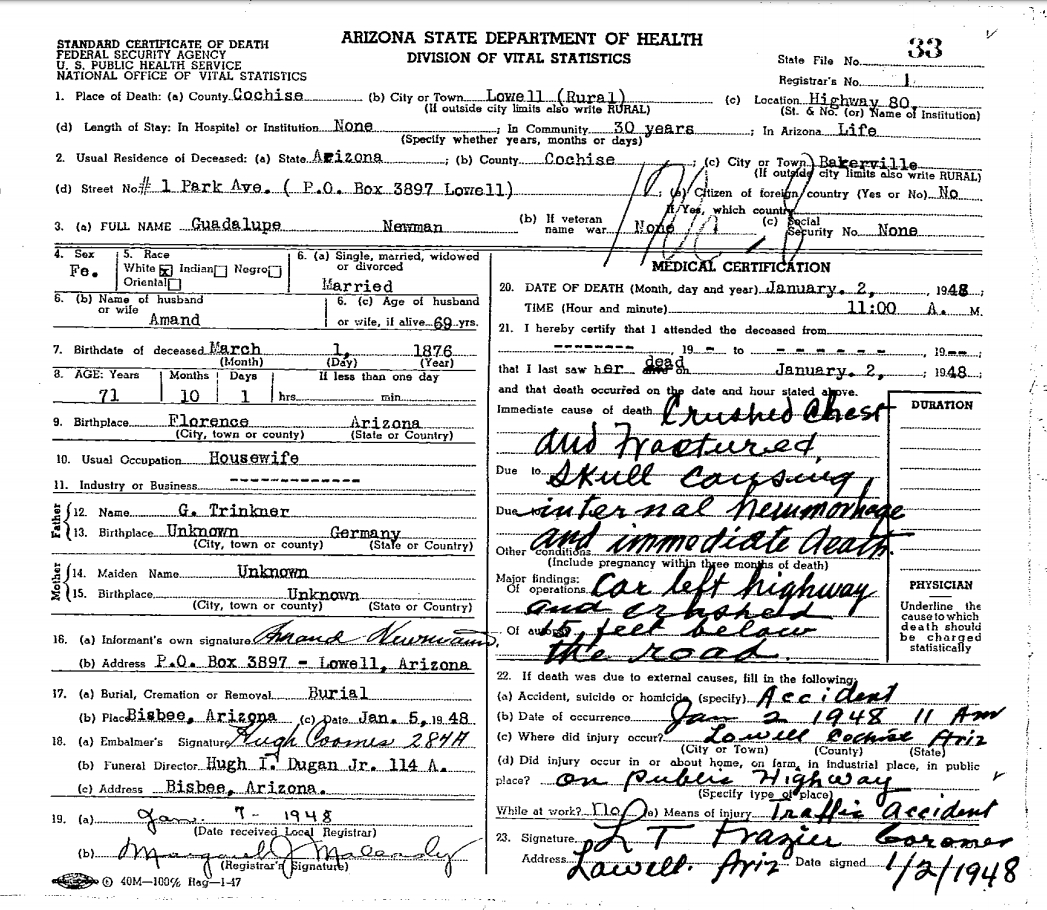 STANDARD CERTIFICATE OF DEATH
FEDERAL SECURITY AGENCY
U. S. PUBLIC HEALTH SERVICE
NATIONAL OFFICE OF VITAL STATISTICS
ARIZONA STATE DEPARTMENT OF HEALTH
DIVISION OF VITAL STATISTICS
33
State File No.
Registrar's No. 1
1. Place of Death: (a) County Cochise (b) City or Town Lowell (Rural) (c) Location Highway 80,
(If outside city limits also write RURAL) (St. & No. (or) Name of Institution)
(d) Length of Stay: In Hospital or Institution None ; In Community 30 years ; In Arizona Life
(Specify whether years, months or days)
2. Usual Residence of Deceased: (a) State Arizona ; (b) County Cochise ; (c) City or Town Bakerville
(If outside city limits also write RURAL)
(d) Street No. # 1 Park Ave. ( P.O. Box 3897 Lowell) ; (e) Citizen of foreign country (Yes or No) No
If Yes, which country
3. (a) FULL NAME Guadalupe Newman (b) If veteran name war None (c) Social Security No. None
4. Sex Fe.
5. Race
White ☒ Indian ☐ Negro ☐
Oriental ☐
6. (a) Single, married, widowed or divorced
Married
6. (b) Name of husband or wife
Amand
6. (c) Age of husband or wife, if alive 69 yrs.
7. Birthdate of deceased March 1, 1876
(Month) (Day) (Year)
8. AGE: Years Months Days If less than one day
71 10 1 hrs. min.
9. Birthplace Florence Arizona
(City, town or county) (State or Country)
10. Usual Occupation Housewife
11. Industry or Business -------------
Father
12. Name G. Trinkner
13. Birthplace Unknown Germany
(City, town or county) (State or Country)
Mother
14. Maiden Name Unknown
15. Birthplace Unknown
(City, town or county) (State or Country)
16. (a) Informant's own signature Amand Newmann
(b) Address P.O. Box 3897 - Lowell, Arizona
17. (a) Burial, Cremation or Removal Burial
(b) Place Bisbee, Arizona (c) Date Jan. 5, 1948
18. (a) Embalmer's Signature Hugh Coomes 284A
(b) Funeral Director Hugh I. Dugan Jr. 114 A.
(c) Address Bisbee, Arizona.
19. (a) Jan. 7 - 1948
(Date received Local Registrar)
(b) Margaret J
(Registrar's Signature)
40M—100% Rag—1-47
MEDICAL CERTIFICATION
20. DATE OF DEATH (Month, day and year) January. 2, , 1948 ;
TIME (Hour and minute) 11:00 A. M.
21. I hereby certify that I attended the deceased from
-------- 19 - to - - - - - - , 19 -- ;
that I last saw her dead on January. 2, ; 1948
and that death occurred on the date and hour stated above.
Immediate cause of death Crushed Chest
and Fractured,
Due to Skull causing,
Due to internal hemmorhage
and immediate death.
Other conditions
(Include pregnancy within three months of death)
Major findings:
Of operations car left highway
and crashed
Of autopsy 15 feet below
the road.
DURATION
PHYSICIAN
Underline the
cause to which
death should
be charged
statistically
22. If death was due to external causes, fill in the following:
(a) Accident, suicide or homicide (specify) Accident
(b) Date of occurrence Jan 2 1948 11 Am
(c) Where did injury occur? Lowell Cochise Ariz
(City or Town) (County) (State)
(d) Did injury occur in or about home, on farm, in industrial place, in public
place? on public Highway
(Specify type of place)
While at work? no (e) Means of injury Traffic Accident
23. Signature L T Frazier Coroner
Address Lowell. Ariz Date signed 1/2/1948